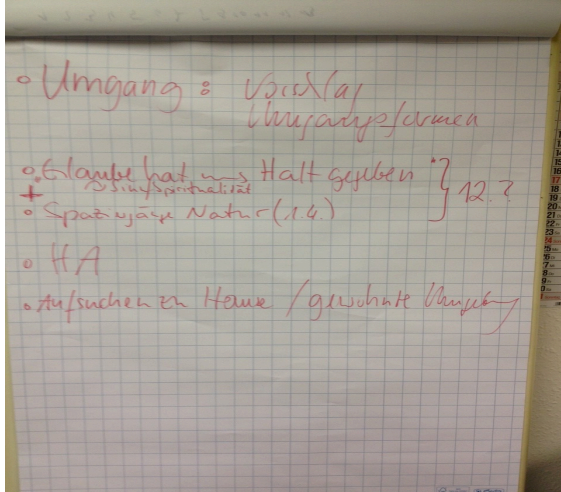 • Umgang : Vorschlag
Umgangsformen
• Glaube hat uns Halt gegeben } 12.?
+ Sinn/Spiritualität
• Spaziergänge Natur (1.4.)
• HA
• Aufsuchen zu Hause / gewohnte Umgebung